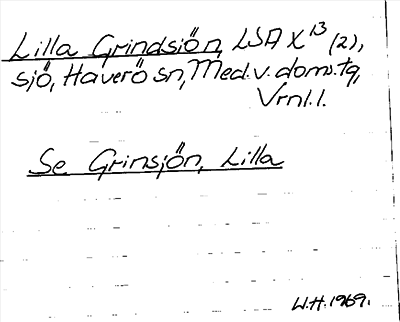 Lilla Grindsjön, LSA X¹³ (2),
sjö, Haverö sn, Med.v. doms.tg,
Vrnl.l.
Se Grinsjön, Lilla
W.H. 1969.